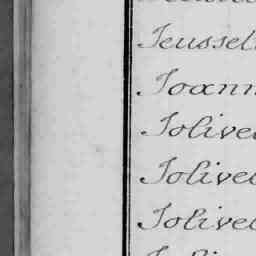 Jeussel
Joann
Jolive
Jolive
Jolive